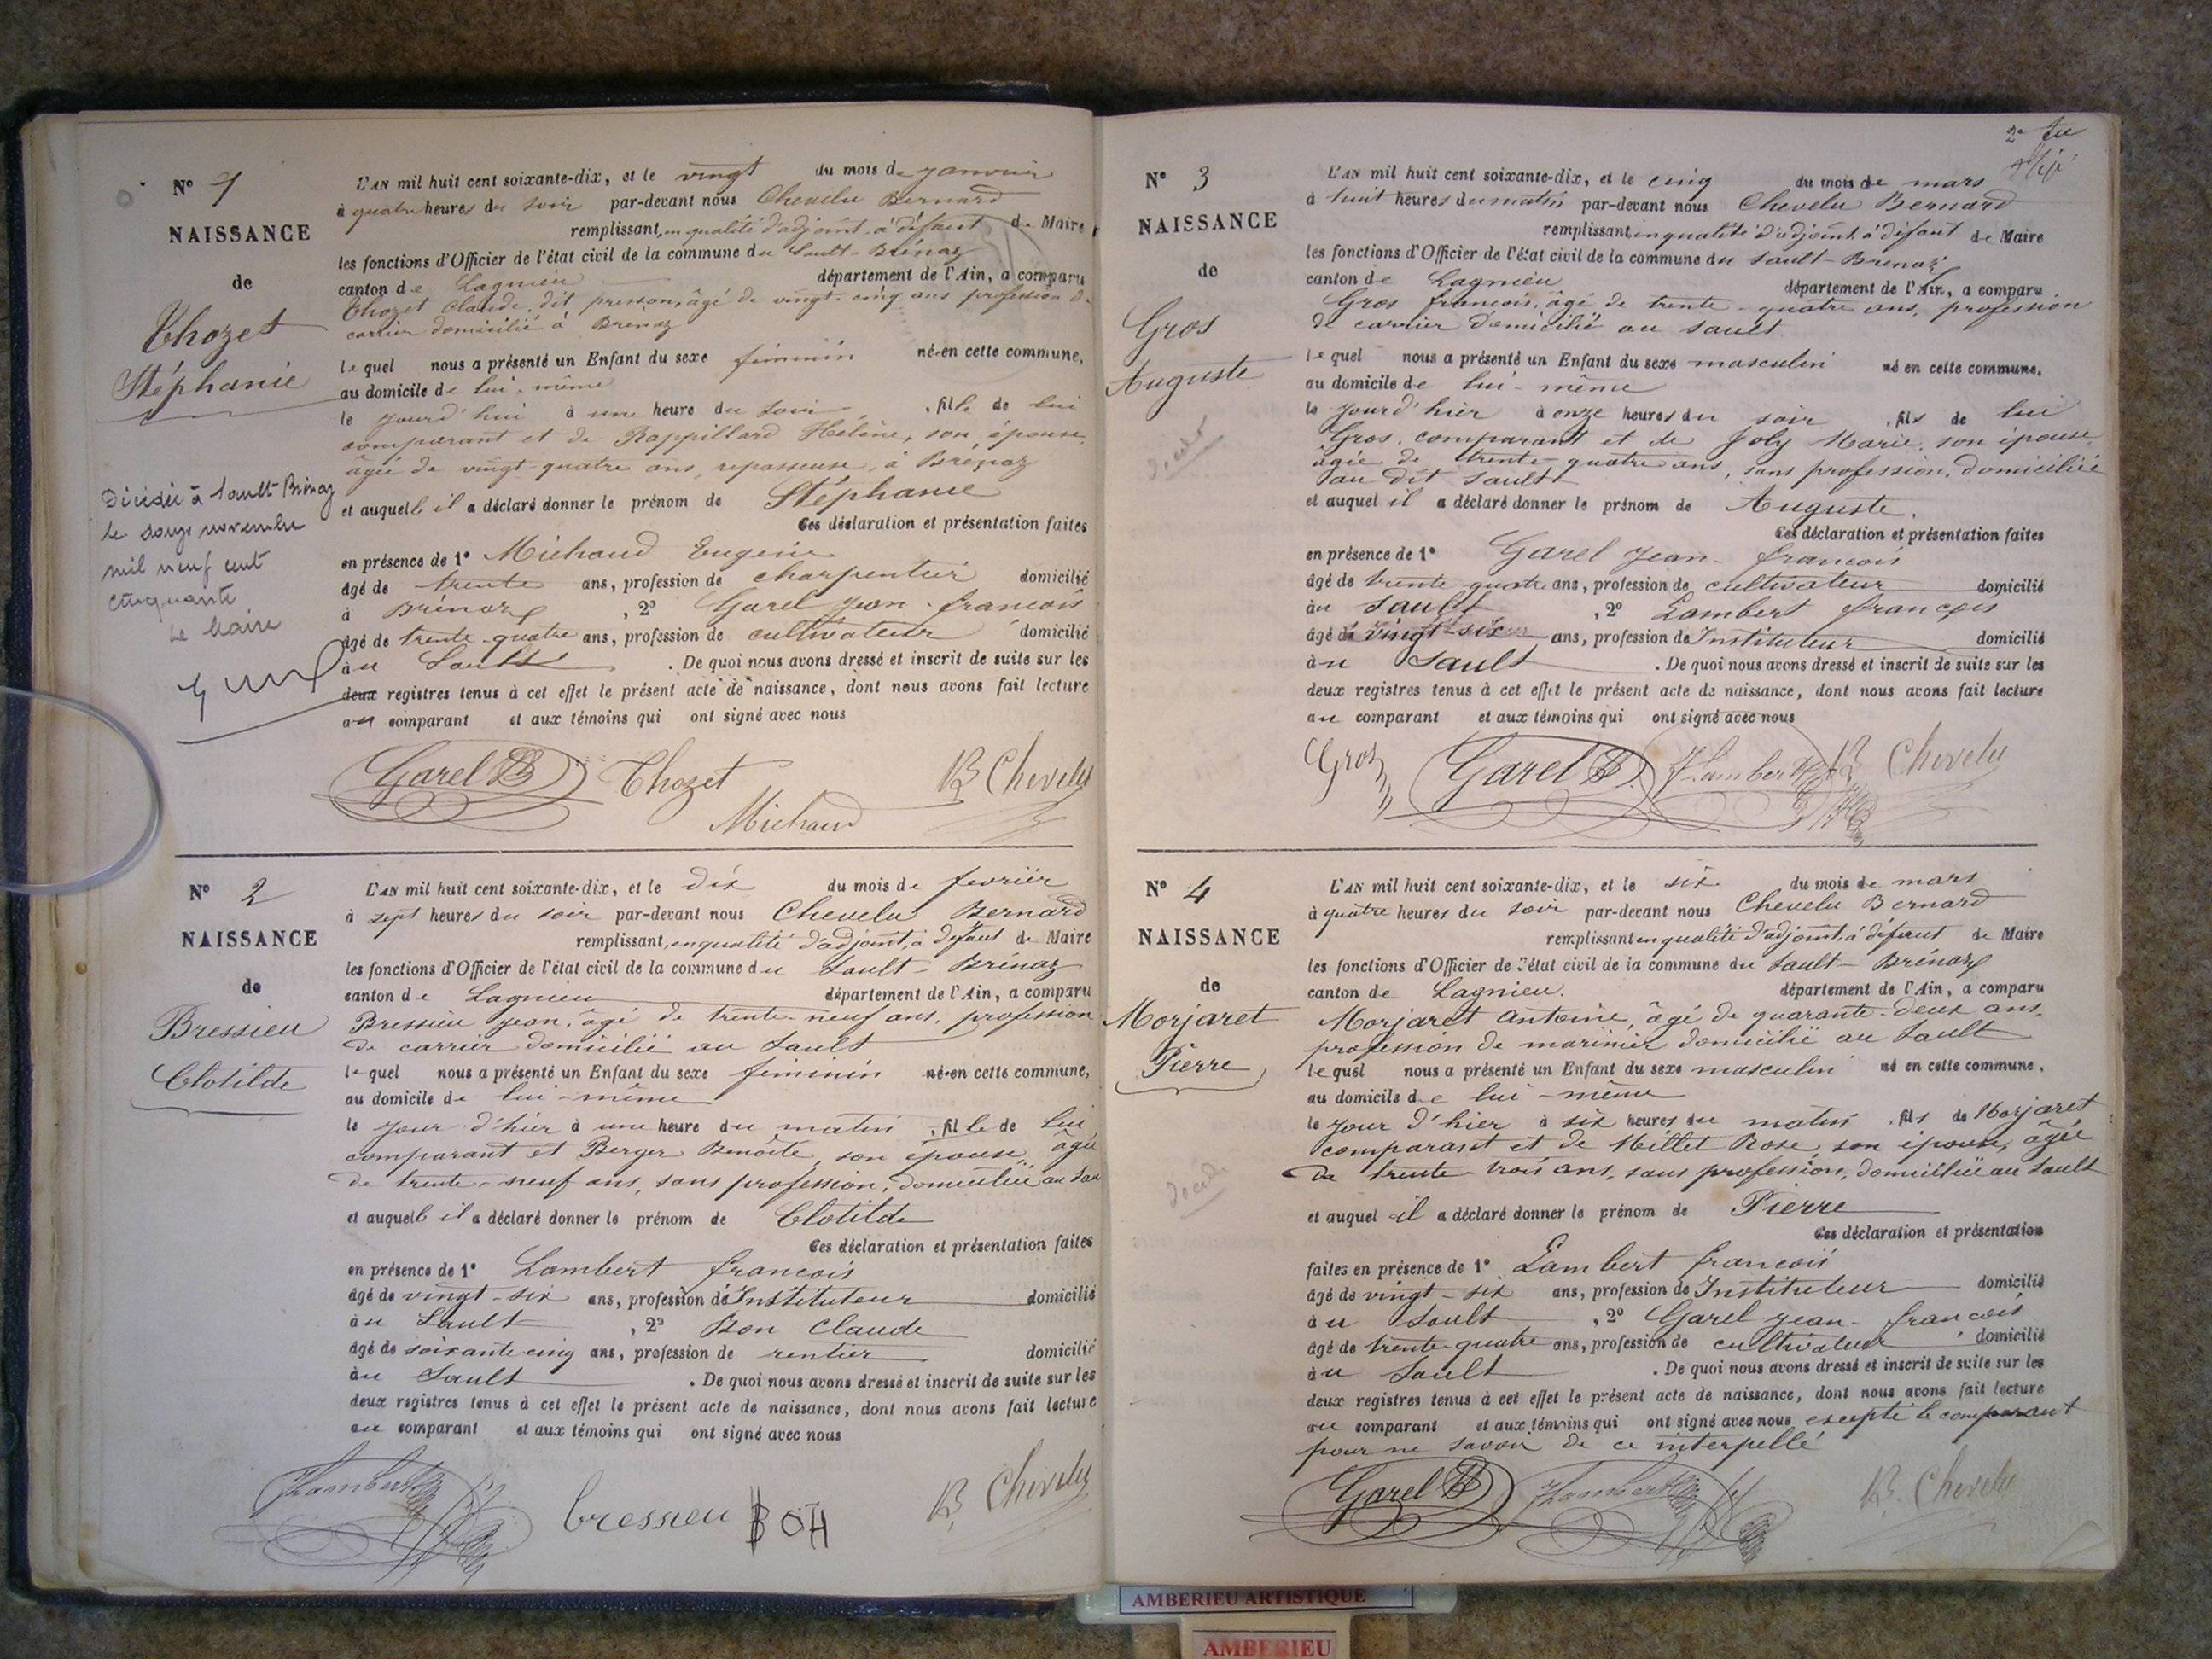 Nº 1
NAISSANCE
de
Thozet
Stéphanie
Décédée à Sault-Brénaz
le douze novembre
mil neuf cent
cinquante
Le Maire
L'AN mil huit cent soixante-dix, et le vingt du mois de janvier
à quatre heures du soir par-devant nous Chevelu Bernard
remplissant, en qualité d'adjoint à défaut de Maire
les fonctions d'Officier de l'état civil de la commune du Sault-Brénaz
canton de Lagnieu département de l'Ain, a comparu
Thozet Claude, dit presson, âgé de vingt-cinq ans profession de
carrier domicilié à Brénaz
lequel nous a présenté un Enfant du sexe féminin né en cette commune,
au domicile de lui-même
le jourd'hui à une heure du soir, fille de lui
comparant et de Rappillard Hélène, son épouse,
âgée de vingt-quatre ans, repasseuse, à Brénaz
et auquelle il a déclaré donner le prénom de Stéphanie
Ces déclaration et présentation faites
en présence de 1º Michaud Eugène
âgé de trente ans, profession de charpentier domicilié
à Brénaz, 2º Garel Jean-françois
âgé de trente-quatre ans, profession de cultivateur domicilié
au Sault. De quoi nous avons dressé et inscrit de suite sur les
deux registres tenus à cet effet le présent acte de naissance, dont nous avons fait lecture
au comparant et aux témoins qui ont signé avec nous
Garel Thozet B Chevelu
Michaud
Nº 2
NAISSANCE
de
Bressieu
Clotilde
L'AN mil huit cent soixante-dix, et le dix du mois de fevrier
à sept heures du soir par-devant nous Chevelu Bernard
remplissant, en qualité d'adjoint, à défaut de Maire
les fonctions d'Officier de l'état civil de la commune du Sault-Brénaz
canton de Lagnieu département de l'Ain, a comparu
Bressieu Jean, âgé de trente-neuf ans, profession
de carrier domicilié au Sault
lequel nous a présenté un Enfant du sexe féminin né en cette commune,
au domicile de lui-même
le jour d'hier à une heure du matin, fille de lui
comparant et Berger Benoite, son épouse, âgée
de trente-neuf ans, sans profession, domiciliée au Sau
et auquelle il a déclaré donner le prénom de Clotilde
Ces déclaration et présentation faites
en présence de 1º Lambert françois
âgé de vingt-six ans, profession de Instituteur domicilié
au Sault, 2º Bon Claude
âgé de soixante cinq ans, profession de rentier domicilié
au Sault. De quoi nous avons dressé et inscrit de suite sur les
deux registres tenus à cet effet le présent acte de naissance, dont nous avons fait lecture
au comparant et aux témoins qui ont signé avec nous
Lambert bressieu BOH B Chevelu
2e feu
Nº 3
NAISSANCE
de
Gros
Auguste
décédé
L'AN mil huit cent soixante-dix, et le cinq du mois de mars
à huit heures du matin par-devant nous Chevelu Bernard
remplissant en qualité d'adjoint à défaut de Maire
les fonctions d'Officier de l'état civil de la commune du Sault-Brénaz
canton de Lagnieu département de l'Ain, a comparu
Gros françois, âgé de trente-quatre ans, profession
de carrier domicilié au Sault
lequel nous a présenté un Enfant du sexe masculin né en cette commune,
au domicile de lui-même
le jourd'hier à onze heures du soir, fils de lui
Gros, comparant et de Joly Marie, son épouse,
âgée de trente-quatre ans, sans profession, domiciliée
au dit Sault
et auquel il a déclaré donner le prénom de Auguste.
Ces déclaration et présentation faites
en présence de 1º Garel Jean-françois
âgé de trente quatre ans, profession de cultivateur domicilié
au Sault, 2º Lambert françois
âgé de vingt-six ans, profession de Instituteur domicilié
au Sault. De quoi nous avons dressé et inscrit de suite sur les
deux registres tenus à cet effet le présent acte de naissance, dont nous avons fait lecture
au comparant et aux témoins qui ont signé avec nous
Gros Garel Lambert B Chevelu
Nº 4
NAISSANCE
de
Morjaret
Pierre
décédé
L'AN mil huit cent soixante-dix, et le six du mois de mars
à quatre heures du soir par-devant nous Chevelu Bernard
remplissant en qualité d'adjoint, à défaut de Maire
les fonctions d'Officier de l'état civil de la commune du Sault-Brénaz
canton de Lagnieu. département de l'Ain, a comparu
Morjaret Antoine, âgé de quarante-deux ans,
profession de marinier domicilié au Sault
lequel nous a présenté un Enfant du sexe masculin né en cette commune,
au domicile de lui-même
le jour d'hier à six heures du matin, fils de Morjaret
comparant et de Millet Rose, son épouse, âgée
de trente-trois ans, sans profession, domiciliée au Sault
et auquel il a déclaré donner le prénom de Pierre
Ces déclaration et présentation
faites en présence de 1º Lambert françois
âgé de vingt-six ans, profession de Instituteur domicilié
au Sault, 2º Garel Jean-françois
âgé de trente-quatre ans, profession de cultivateur domicilié
au Sault. De quoi nous avons dressé et inscrit de suite sur les
deux registres tenus à cet effet le présent acte de naissance, dont nous avons fait lecture
au comparant et aux témoins qui ont signé avec nous excepté le comparant
pour ne savoir de ce interpellé
Garel Lambert B. Chevelu
AMBERIEU ARTISTIQUE
AMBERIEU